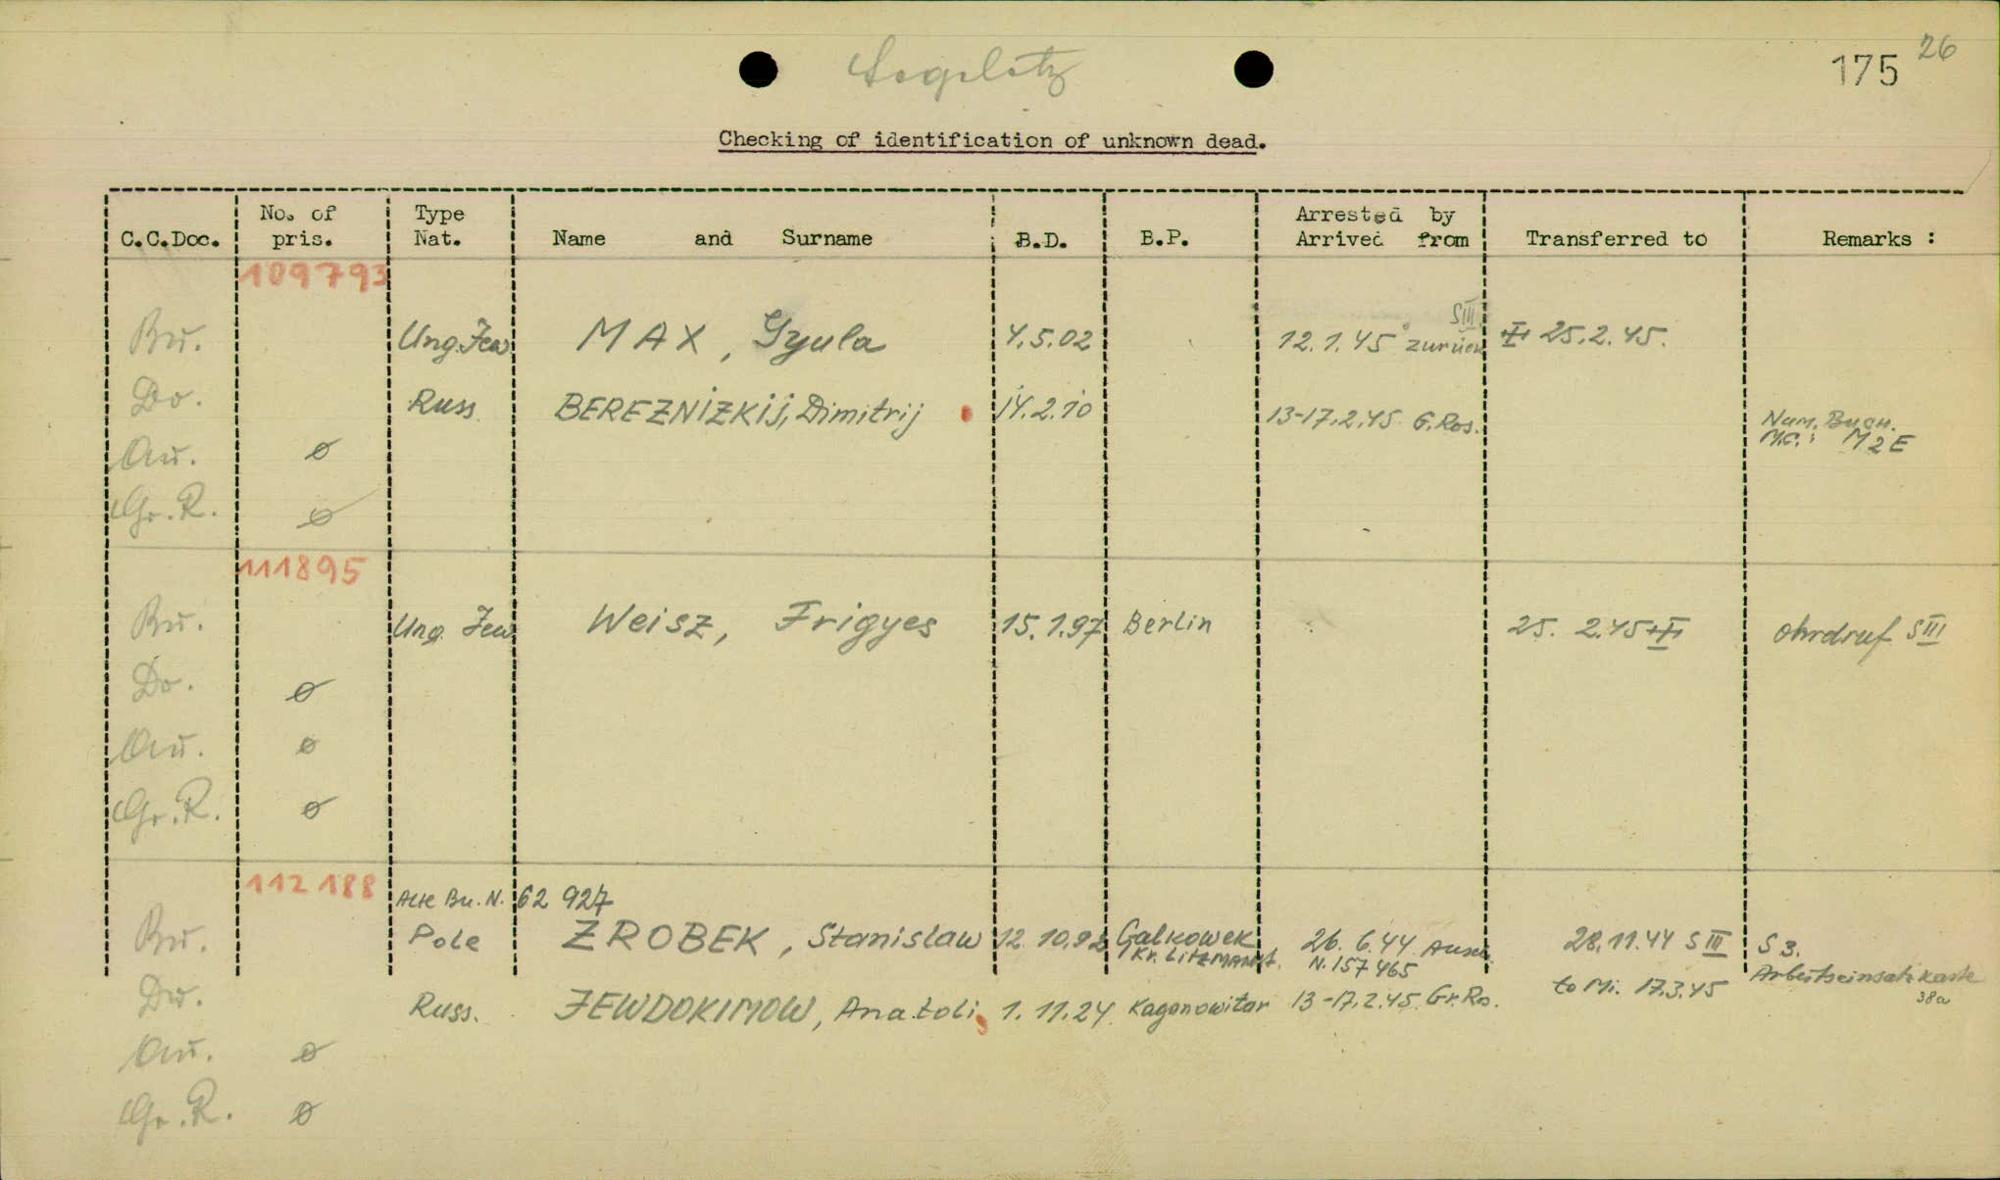 175 26
Checking of identification of unknown dead.
C.C.Doc. No. of pris. Type Nat. Name and Surname B.D. B.P. Arrested by Arrived from Transferred to Remarks :
109793
SIII
Bu. Ung. Jew MAX, Gyula 4.5.02 12.1.45 zurück 25.2.45.
Do. Russ. BEREZNIZKIJ, Dimitrij 14.2.10 13-17.2.45 G.Ros. Num. Buch.
M.C.: M2E
Au. ø
Gr.R. ø
111895
Bu. Ung. Jew Weisz, Frigyes 15.1.97 Berlin 25. 2.45 Ohrdruf SIII
Do. ø
Au. ø
Gr.R. ø
112188 Alte Bu. N. 62 927
Bu. Pole ZROBEK, Stanislaw 12.10.92 Galkowek 26. 6.44 Ausch. 28.11.44 SIII S3.
Kr. Litzmannst. N. 157465
Arbeitseinsatzkarte
Do. Russ. JEWDOKIMOW, Anatoli 1.11.24 Kaganowitar 13-17.2.45 Gr.Ro. to Mi. 17.3.45 38a
Au. ø
Gr.R. ø